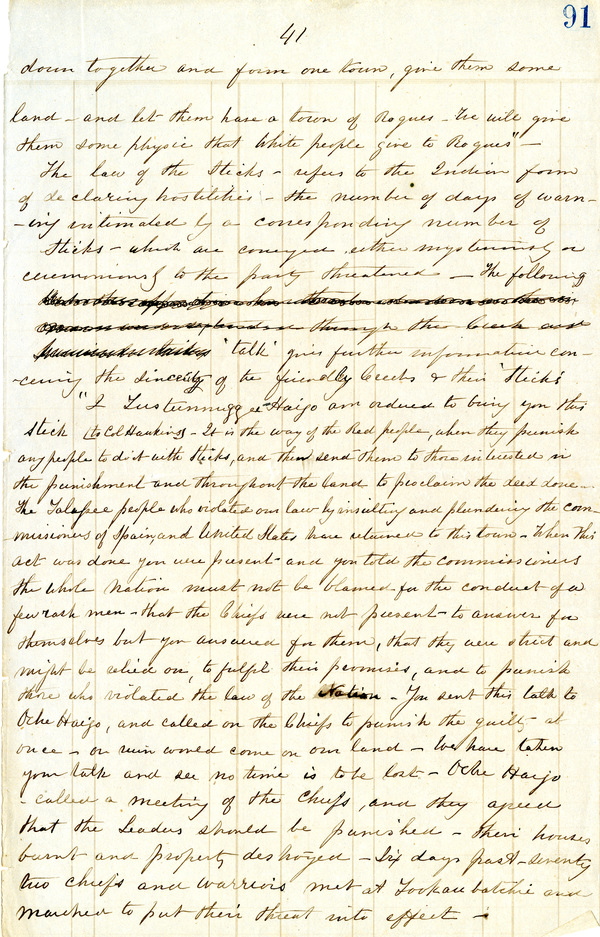 91
41
down together and form one town, give them some
land - and let them have a town of Rogues - We will give
them some physic that White people give to Rogues" -
The law of the Sticks - refers to the Indian form
of declaring hostilities - the number of days of warn-
-ing intimated by a corresponding number of
Sticks - which are conveyed either mysteriously or
ceremoniously to the party threatened - The following
through the Creek
'talk' gives further information con-
-cerning the sincerity of the friendly Creeks & their 'Sticks'
"I Tustunnuggee Haijo am ordered to bring you this
stick (to Col Hawkins) - It is the way of the Red people, when they punish
any people to do it with Sticks, and then send them to those interested in
the punishment and throughout the land to proclaim the deed done -
The Talapee people who violated our law by insulting and plundering the com-
missioners of Spain, and United States have returned to this town - When this
act was done you were present - and you told the commissioners
the whole Nation must not be blamed for the conduct of a
few rash men - that the Chiefs were not present to answer for
themselves but you answered for them, that they were strict and
might be relied on, to fulfil their promises, and to punish
those who violated the law of the Nation - You sent this talk to
Oche Haijo, and called on the Chiefs to punish the guilty at
once - or ruin would come on our land - We have taken
your talk and see no time is to be lost - Oche Haijo
- called a meeting of the Chiefs, and they agreed
that the Leaders should be punished - their houses
burnt and property destroyed - Six days past - seventy
two chiefs and warriors met at Tookaubatchie and
marched to put their threat into effect -